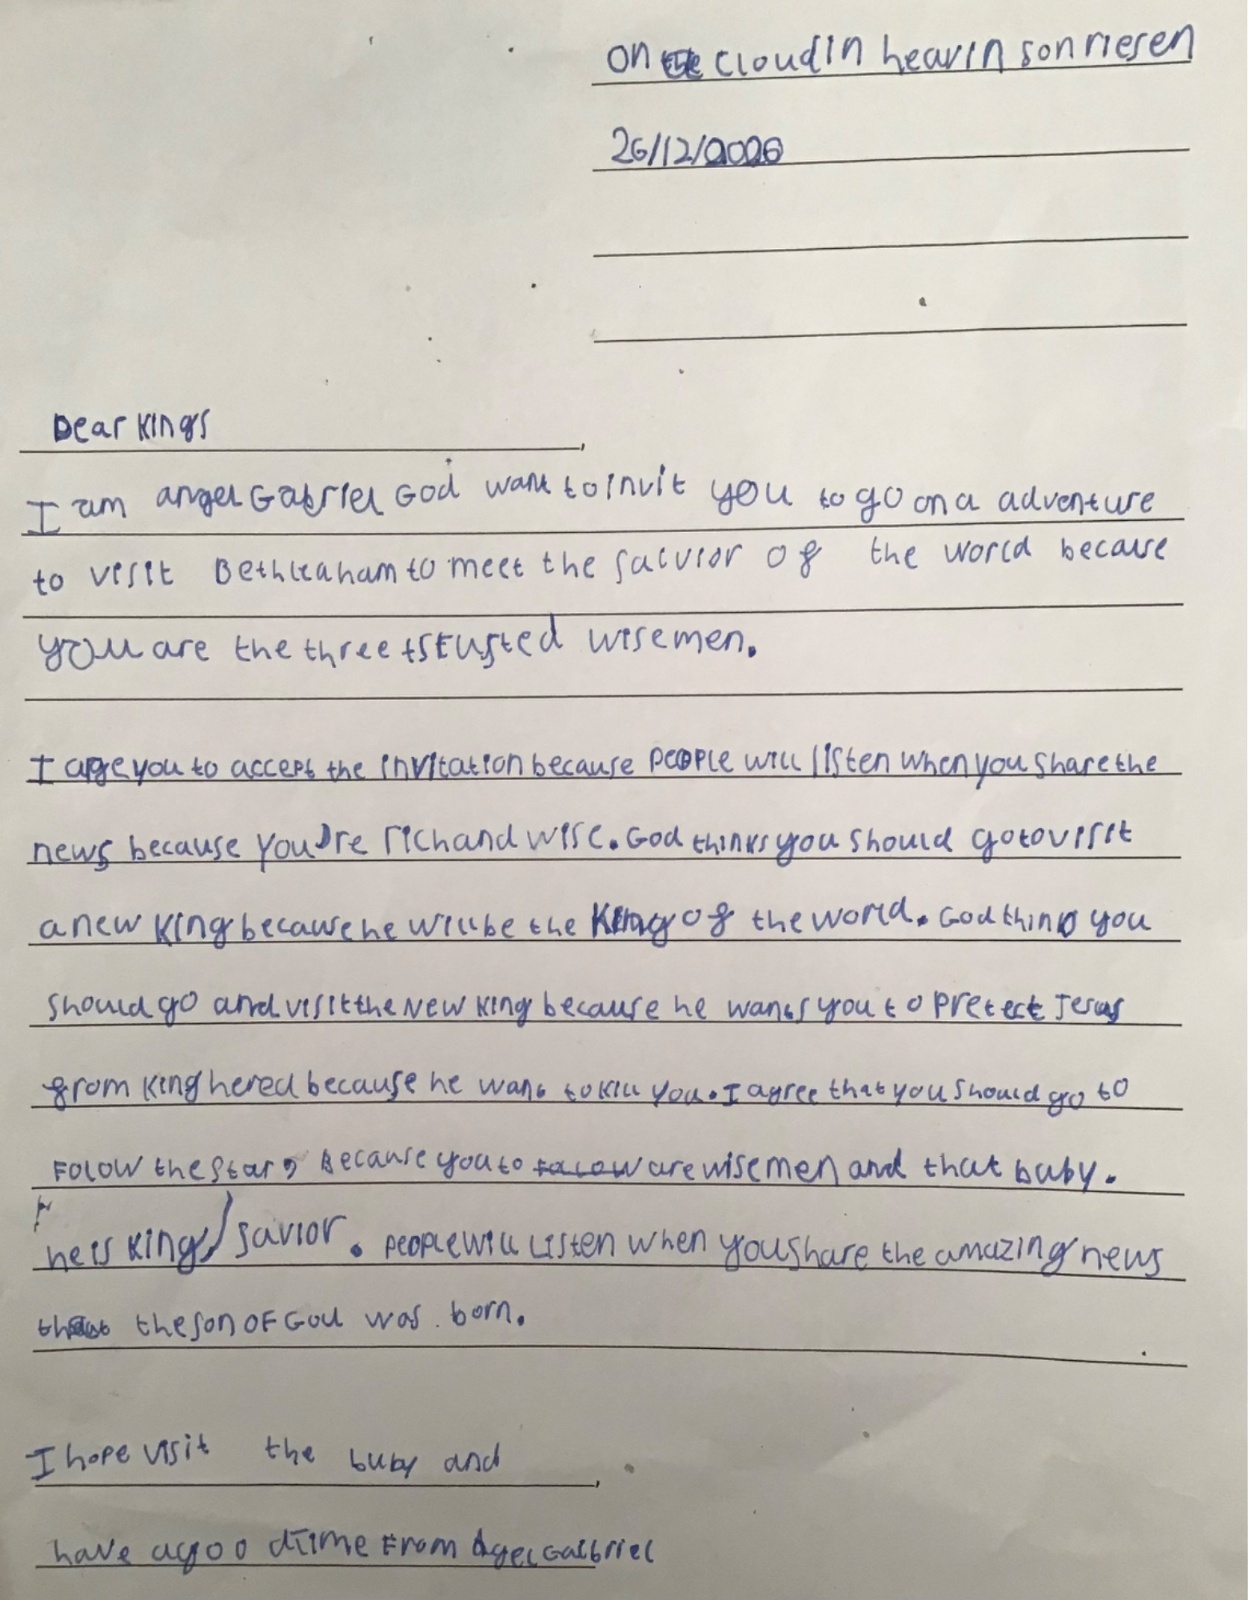 on the cloud in heavin son riesen
26/12/0000
Dear Kings,
I am angel Gabriel God want to invit you to go on a adventure
to visit Bethleaham to meet the salvior of the world because
you are the three trusted wise men.
I age you to accept the invitation because people will listen when you share the
news because you're rich and wise. God thinks you should go to visit
a new King because he will be the King of the world. God think you
should go and visit the New King because he wants you to pretect Jesus
from King hered because he want to kill you. I agree that you should go to
Folow the star, Because you to are wise men and that baby.
he is King/savior. people will listen when you share the amazing news
that the son OF God was born.
I hope visit the buby and,
have a goo dtime From Agel Gaibriel